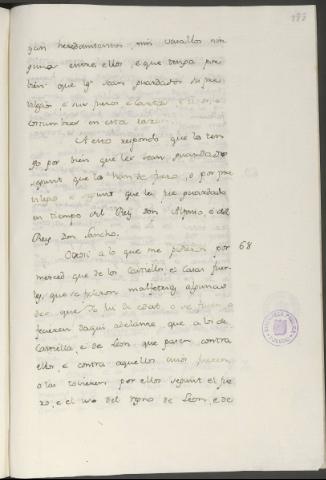 193
gan heredamientos mis vasallos nin
ninguno entre ellos, e que tenga por
bien que les sean guardados sus pre
villegios e sus fueros e cartas e usos e
costumbres en esta razon.
A esto respondo que lo ten
go por bien que les sean guardados
segunt que lo han de fuero, o por pre
vilegio, e segunt que les fue guardado
en tiempo del Rey Don Alfonso e del
Rey Don Sancho.
Otrosi a lo que me pidieron por 68
merced que de los Castiellos e Casas fuer
tes, que se fizieron malfetrias
que
fizieren daqui adelante, que a los de
Castiella, e de Leon que pasen contra
ellos, e contra aquellos cuios fueren,
o las tovieren por ellos segunt el fue
ro, e el uso del regno de Leon, e de